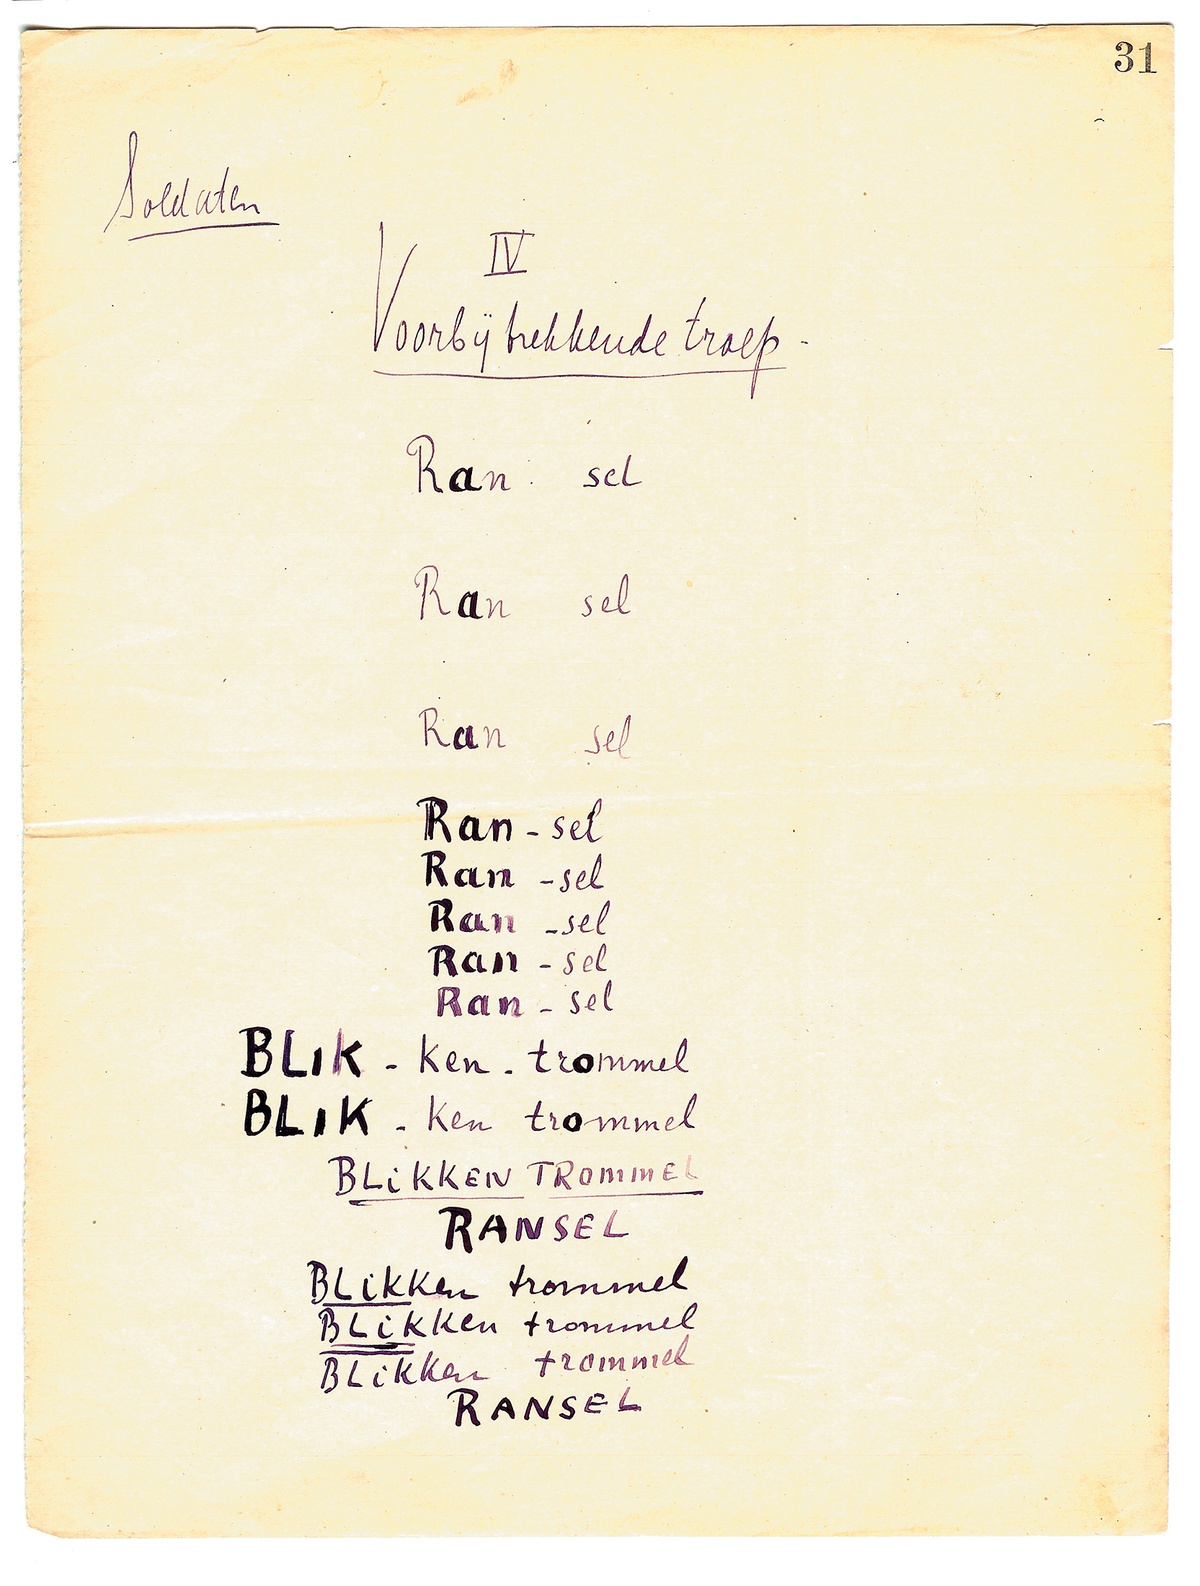 31
Soldaten
IV
Voorbij trekkende troep -
Ran sel
Ran sel
Ran sel
Ran - sel
Ran - sel
Ran - sel
Ran - sel
Ran - sel
BLiK - ken - trommel
BLiK - ken trommel
BLiKKEN TRommEL
RANSEL
BLiKKen trommel
BLiKKen trommel
BLiKKen trommel
RANSEL